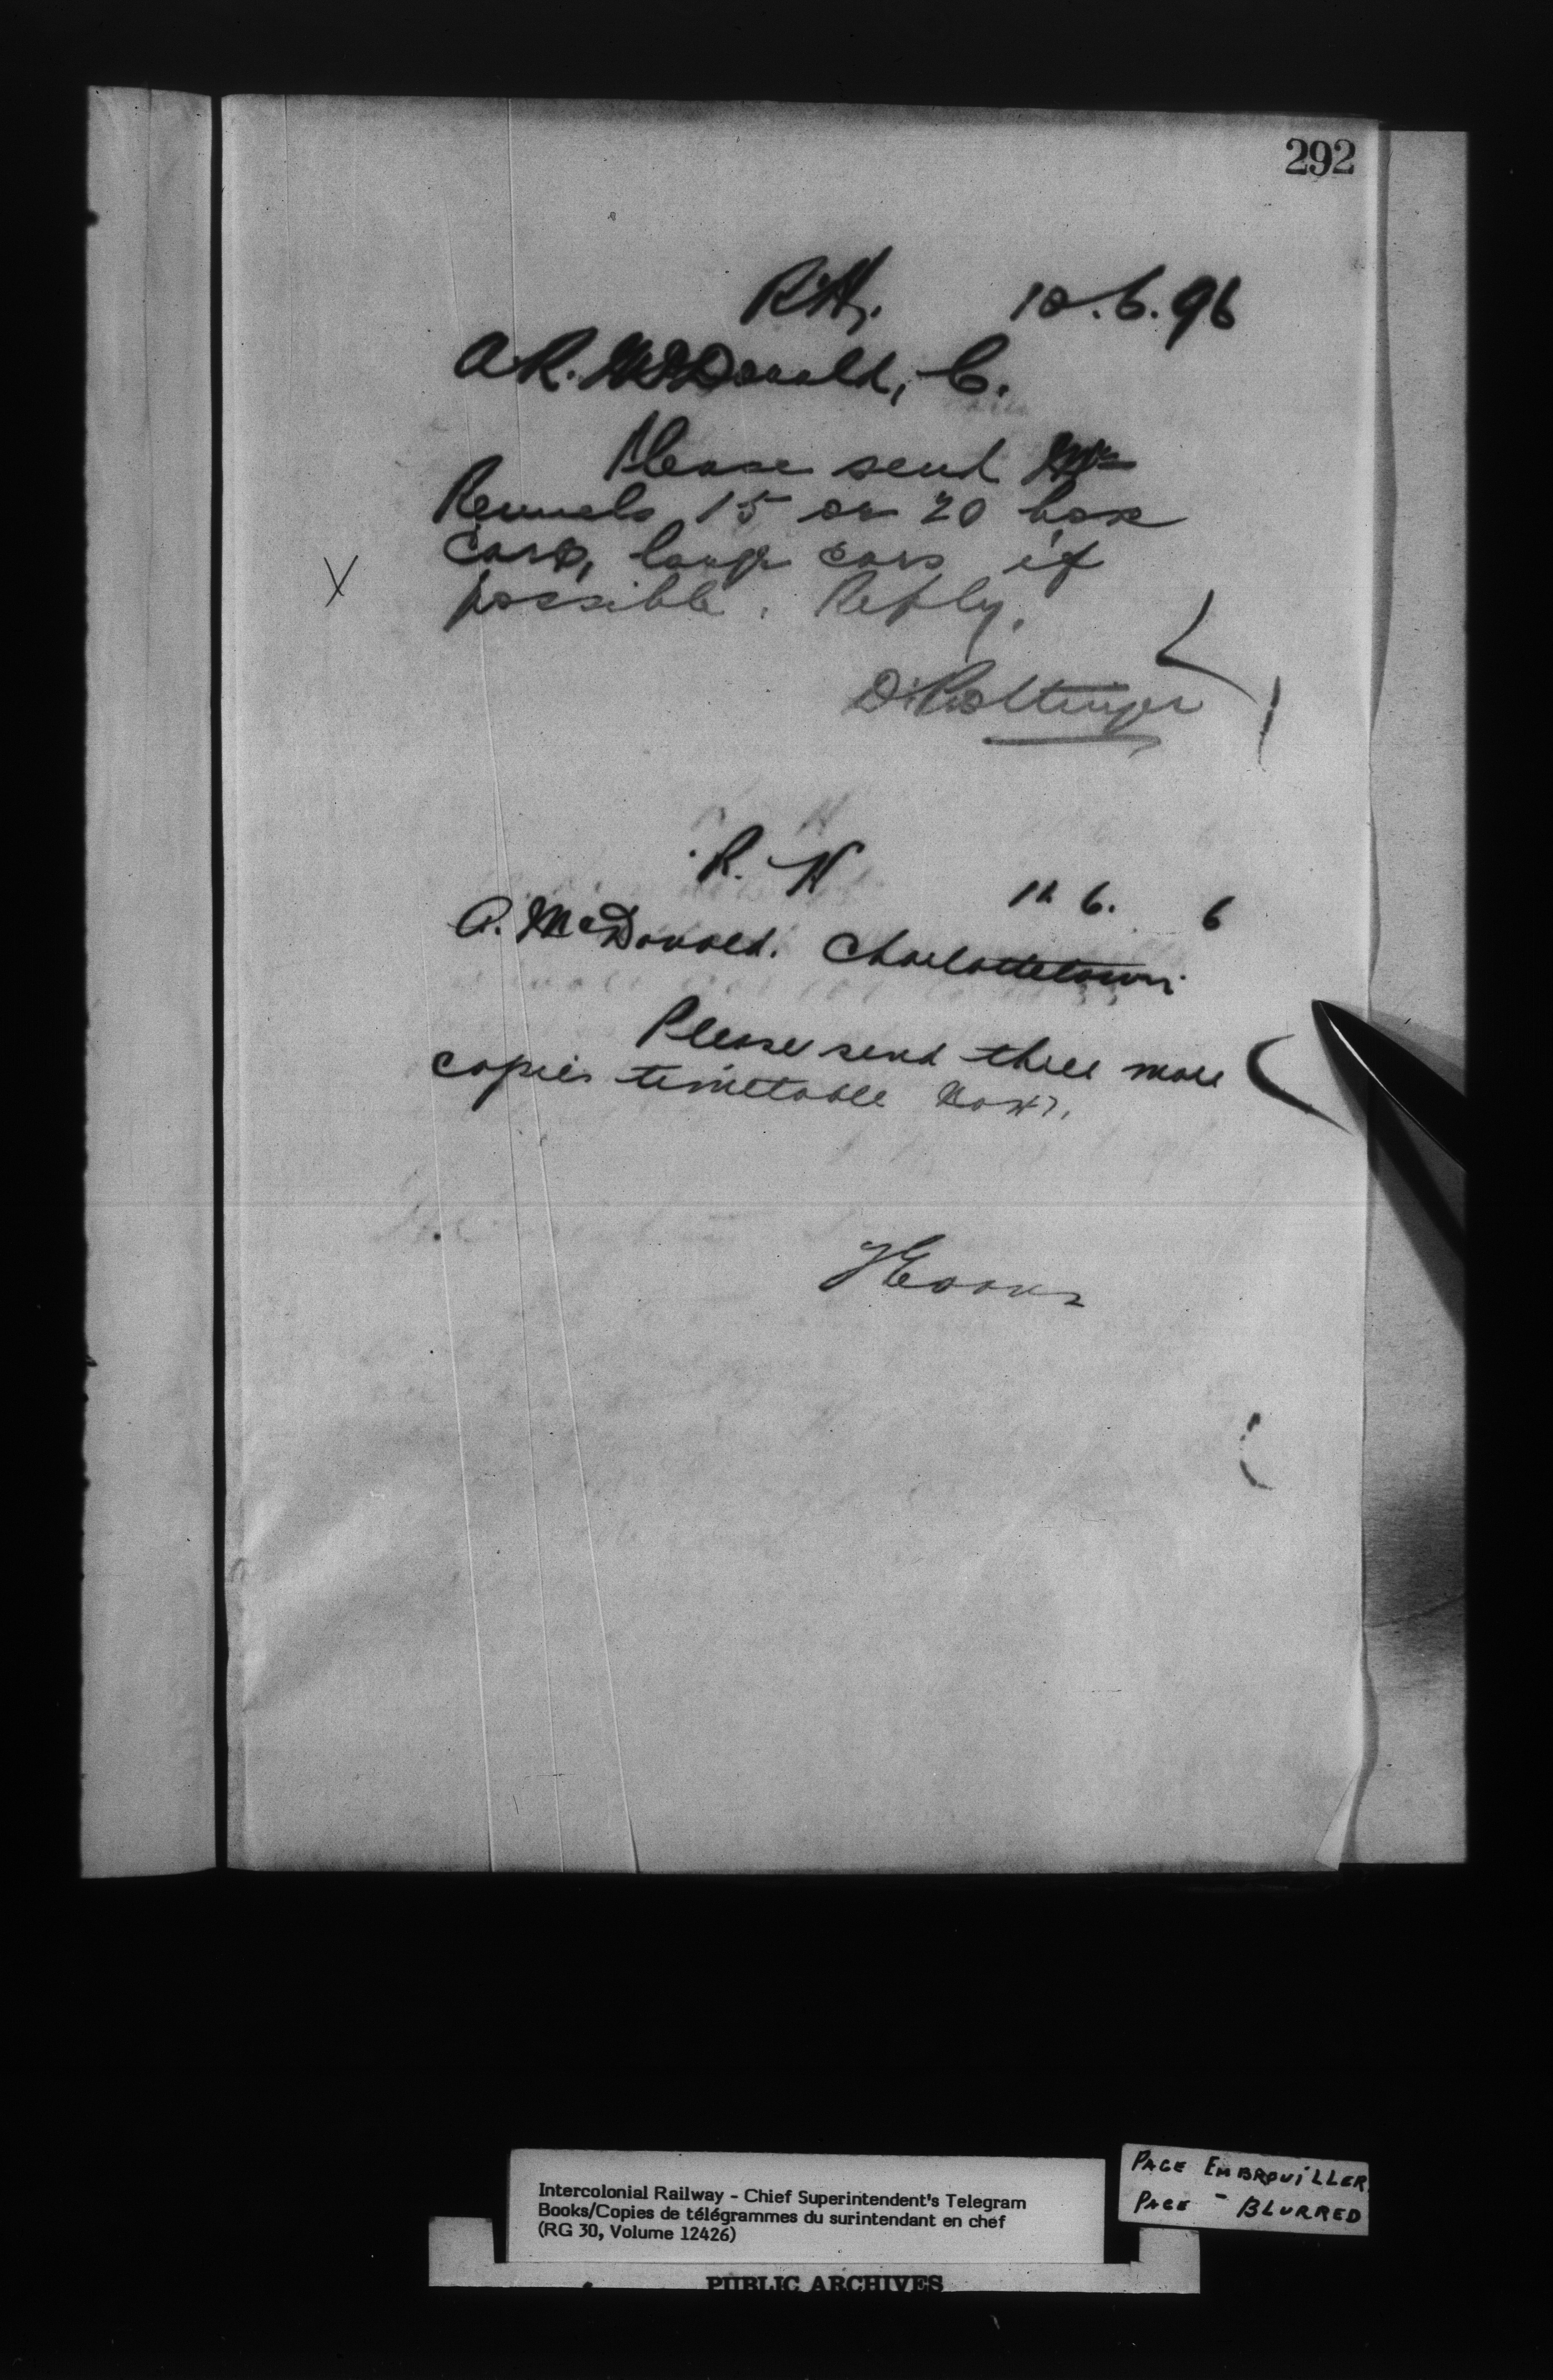 292
R.H. 10.6.96
A.R. McDonald, C.
Please send Mr
15 or 20 box
cars, large cars if
X
possible. Reply.
D. Pottinger
R. H
10 6. 6
A. McDonald. Charlottetown
Please send three more
copies timetable No 47.
Intercolonial Railway - Chief Superintendent's Telegram
Books/Copies de télégrammes du surintendant en chef
(RG 30, Volume 12426)
PAGE EMBROUILLER
PAGE - BLURRED
PUBLIC ARCHIVES